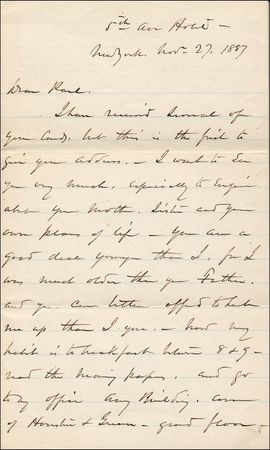 5th Ave Hotel -
New York. Nov. 27, 1887
Dear Karl.
I have received several of
your Cards, but this is the first to
give your address. - I want to See
you very much, especially to Enquire
about your Mother, Sister and your
own plans of life - You are a
good deal younger than I, for I
was much older than yr Father.
and you can better afford to hunt
me up than I you. - Now my
habit is to breakfast between 8 & 9 -
read the morning papers, and go
to my office Army Building, corner
of Houston & Greene - ground floor -